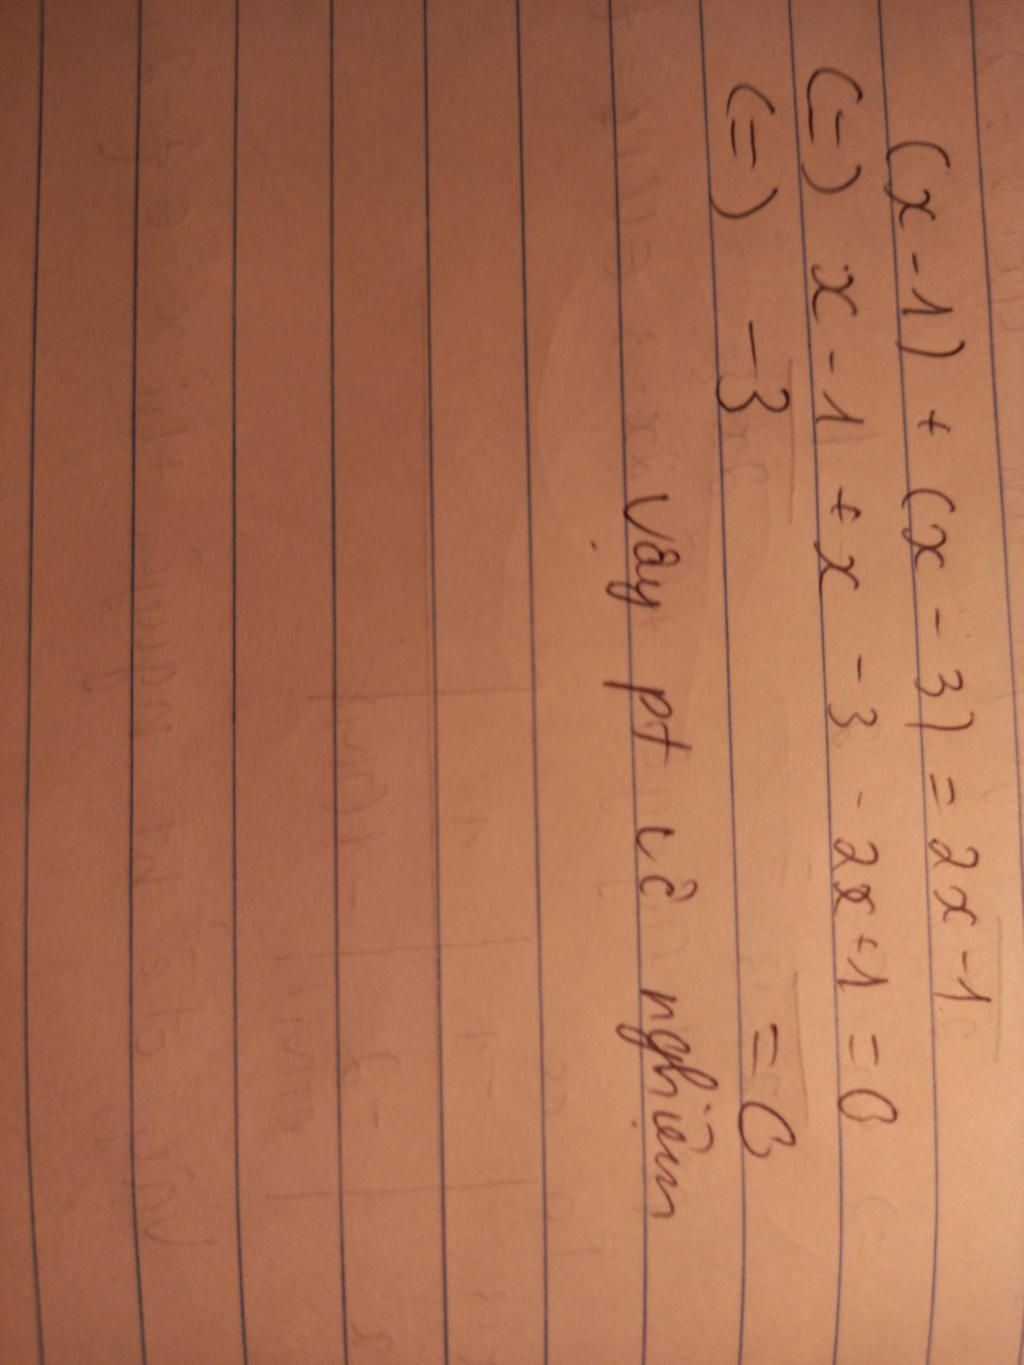 (x - 1) + (x - 3) = 2x - 1
(=) x - 1 + x - 3 - 2x + 1 = 0
(=) - 3 = 0
Vậy pt vô nghiệm